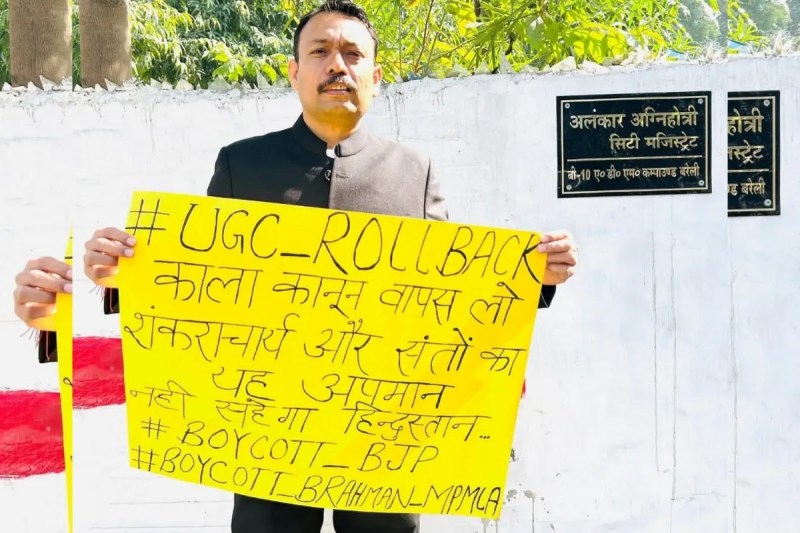 #UGC_ROLLBACK
काला कानून वापस लो
शंकराचार्य और संतों का
यह अपमान
नही सहेगा हिन्दुस्तान...
#BOYCOTT_BJP
#BOYCOTT_BRAHMAN_MPMLA
अलंकार अग्निहोत्री
सिटी मजिस्ट्रेट
बी-10 ए० डी० एम० कम्पाउण्ड बरेली
होत्री
स्ट्रेट
ण्ड बरेली